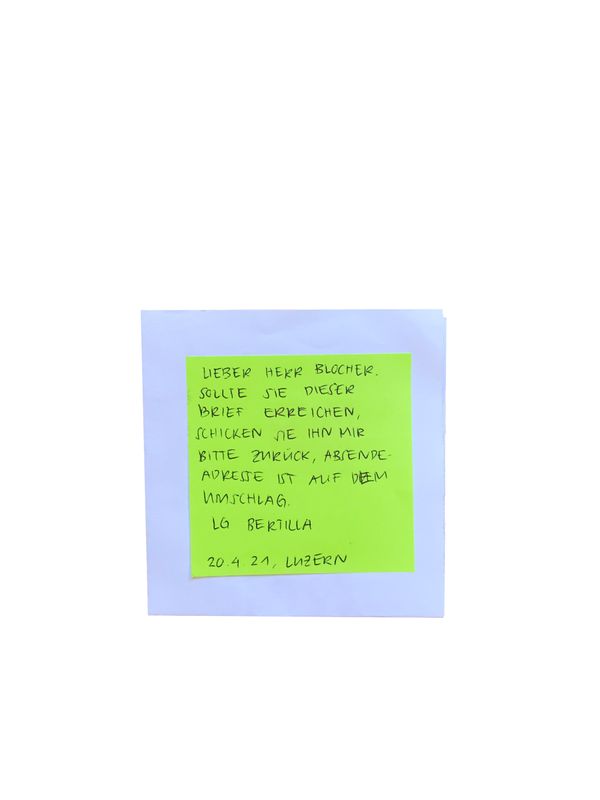 LIEBER HERR BLOCHER.
SOLLTE SIE DIESER
BRIEF ERREICHEN,
SCHICKEN SIE IHN MIR
BITTE ZURÜCK, ABSENDE-
ADRESSE IST AUF DEM
UMSCHLAG.
LG BERTILLA
20.4.21, LUZERN